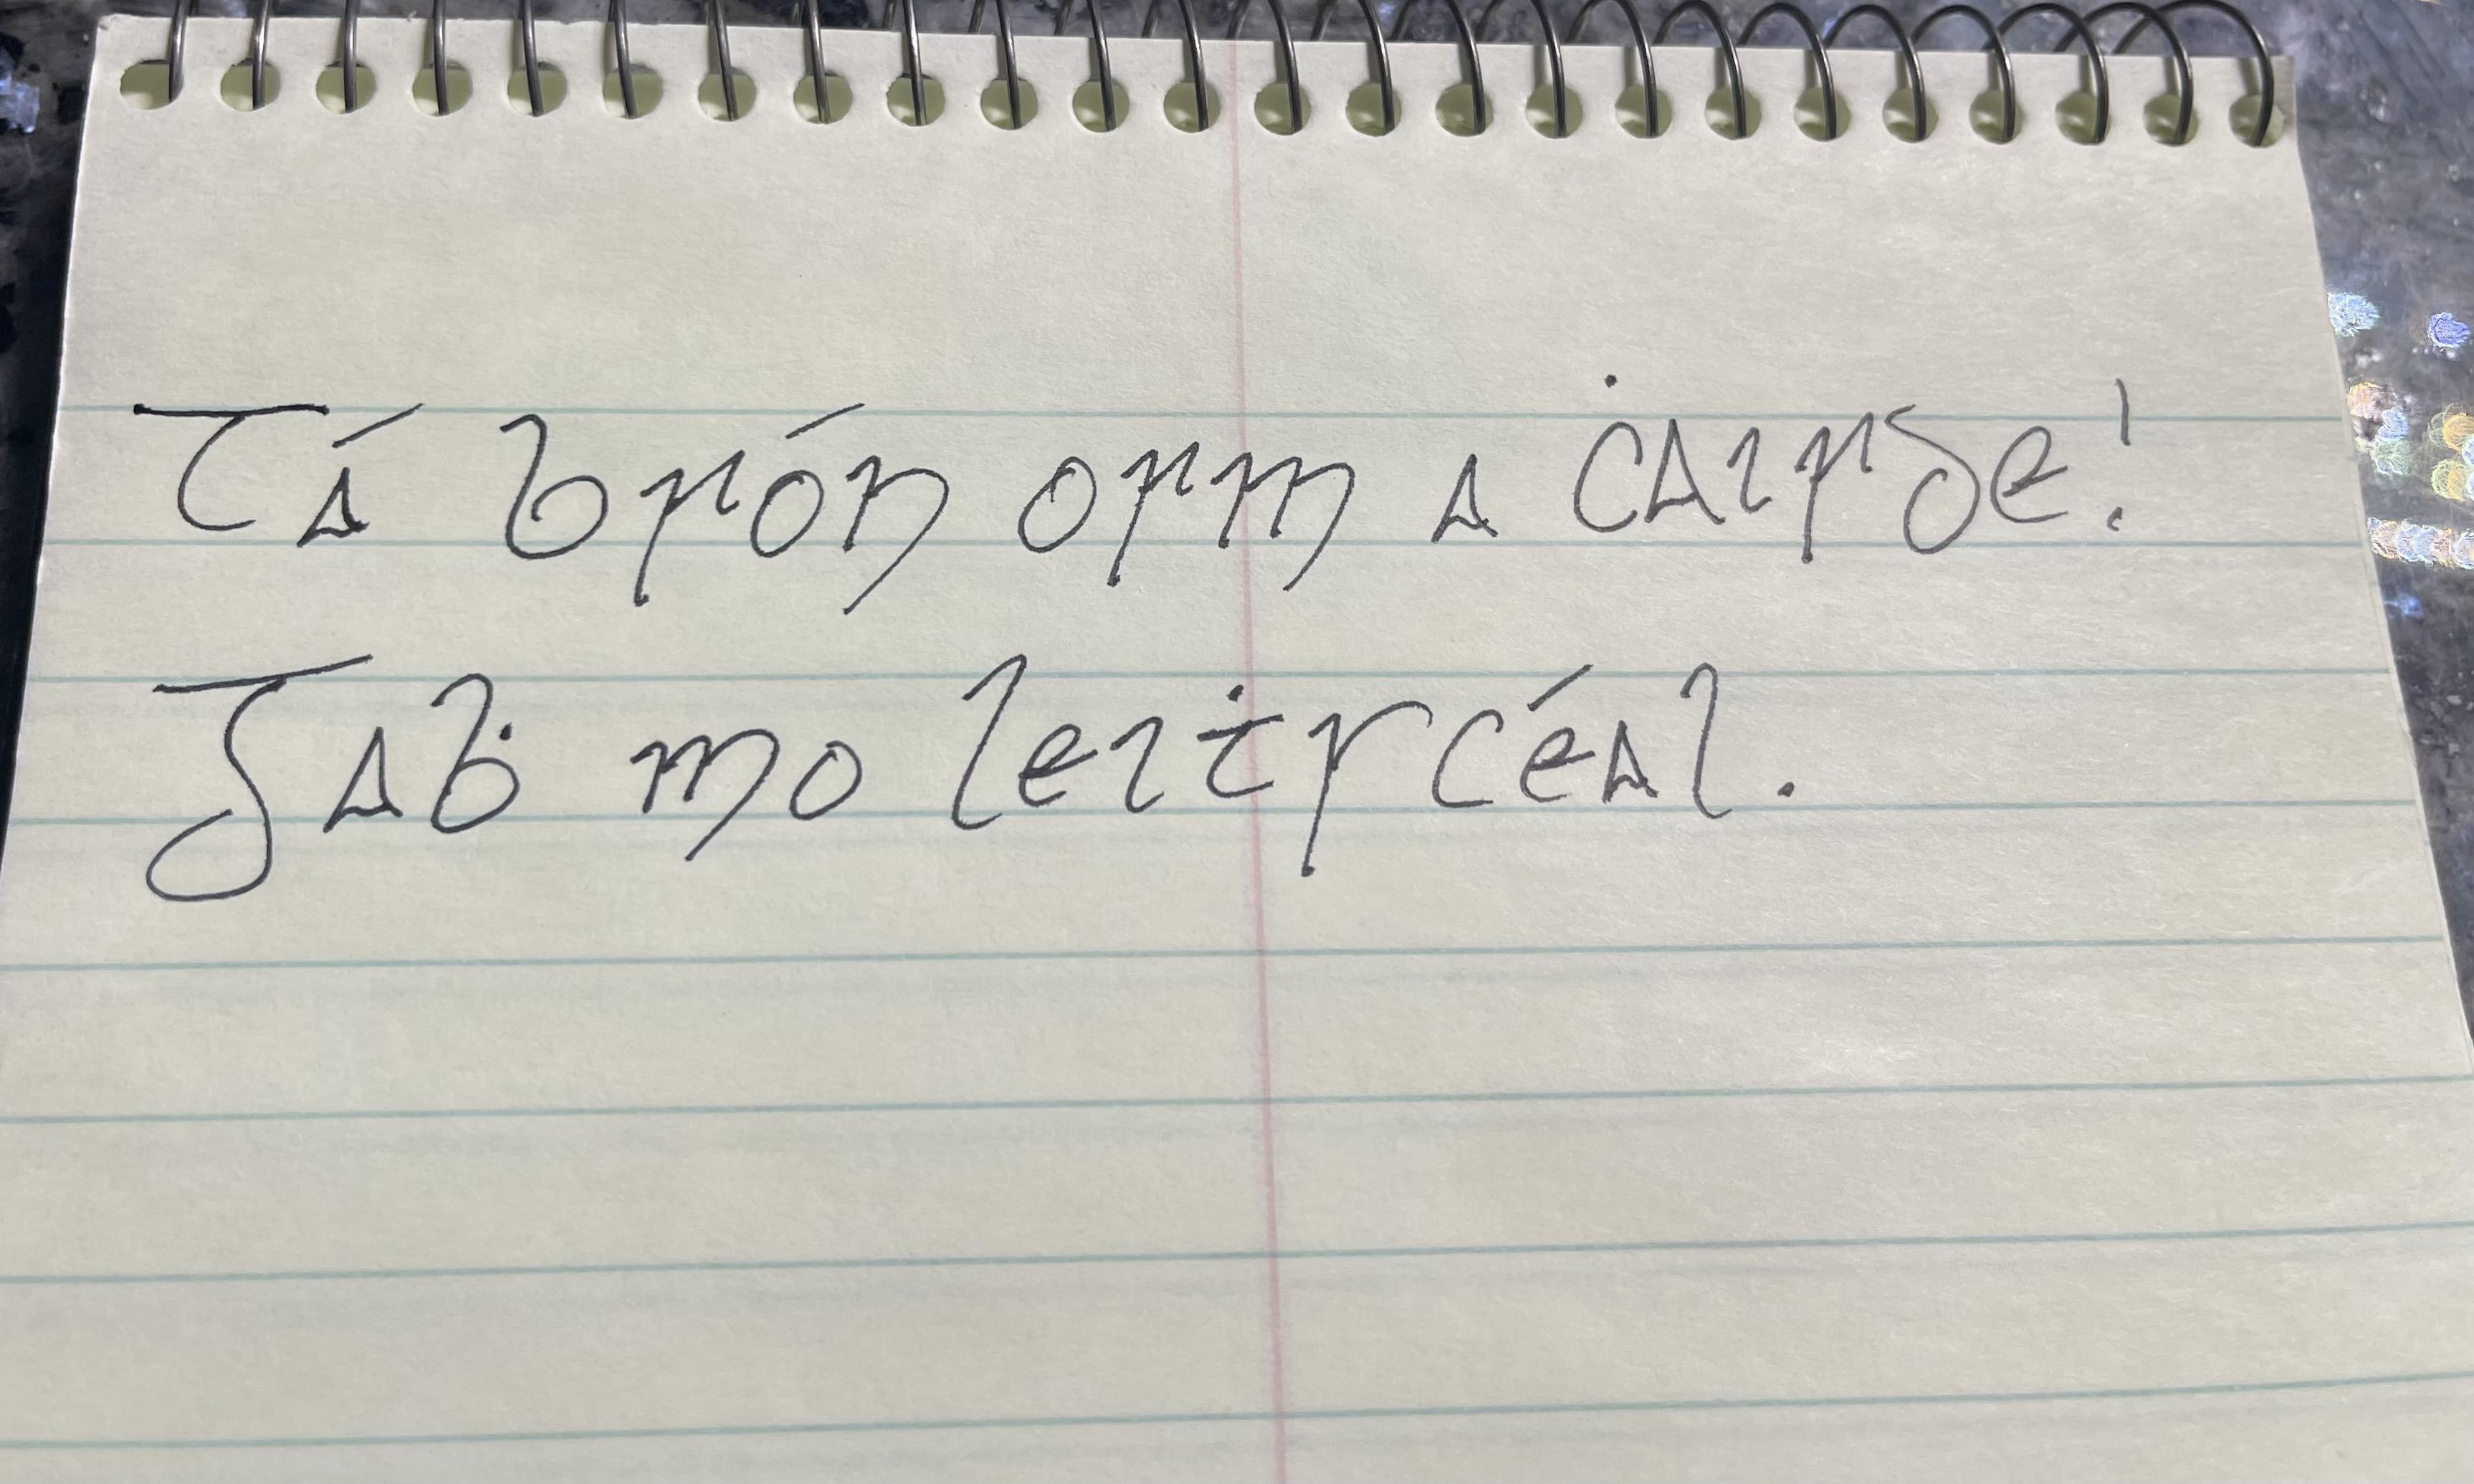 Tá brón orm a ċairde!
Gaḃ mo leiṫscéal.